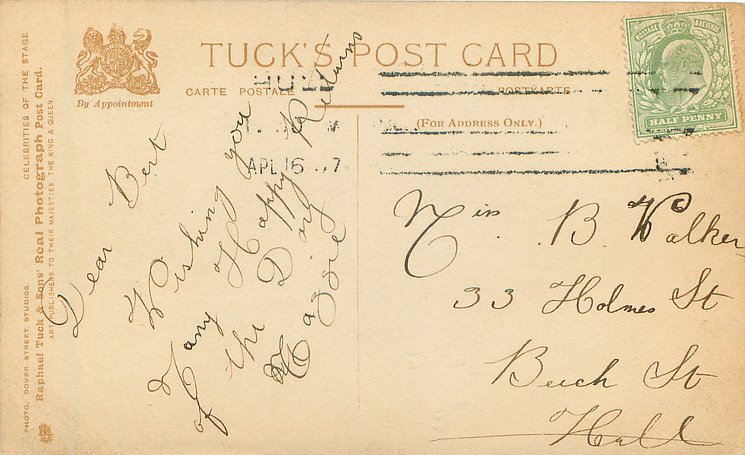 PHOTO, DOVER STREET STUDIOS. CELEBRITIES OF THE STAGE.
Raphael Tuck & Sons' Real Photograph Post Card.
ART PUBLISHERS TO THEIR MAJESTIES THE KING & QUEEN.
By Appointment
TUCK'S POST CARD
CARTE POSTALE POSTKARTE
(FOR ADDRESS ONLY.)
HULL
APL 16 07
POSTAGE REVENUE
HALF PENNY
Dear Bert
Wishing you
Many Happy Returns
of the Day
Maggie
Miss B. Walker
33 Holmes St
Buch St
Hull